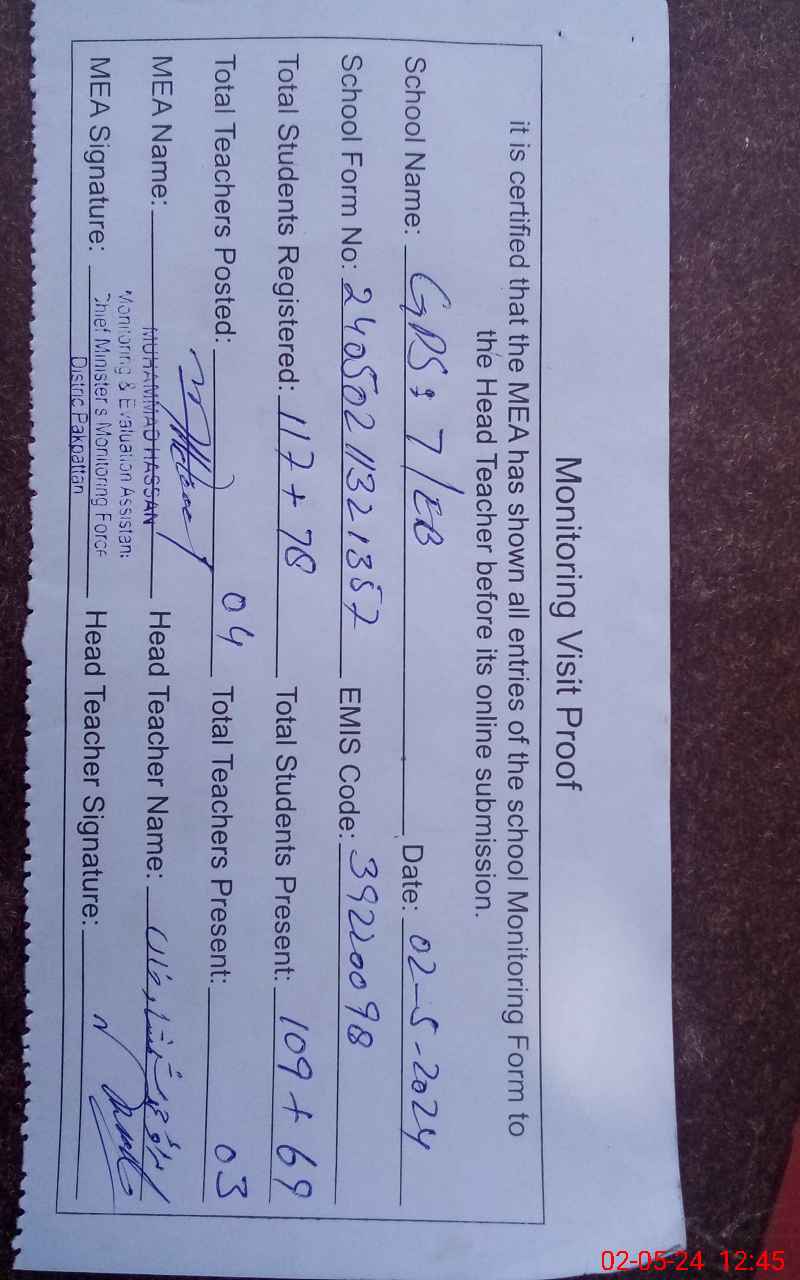 Monitoring Visit Proof
it is certified that the MEA has shown all entries of the school Monitoring Form to
the Head Teacher before its online submission.
School Name: GPS: 7/EB Date: 02-5-2024
School Form No: 24050211321357 EMIS Code: 39220098
Total Students Registered: 117+78 Total Students Present: 109+69
Total Teachers Posted: 04 Total Teachers Present: 03
MEA Name: MUHAMMAD HASSAN Head Teacher Name:
Monitoring & Evaluation Assistant
Chief Minister's Monitoring Force
MEA Signature: Head Teacher Signature:
Distric Pakpattan
02-05-24 12:45